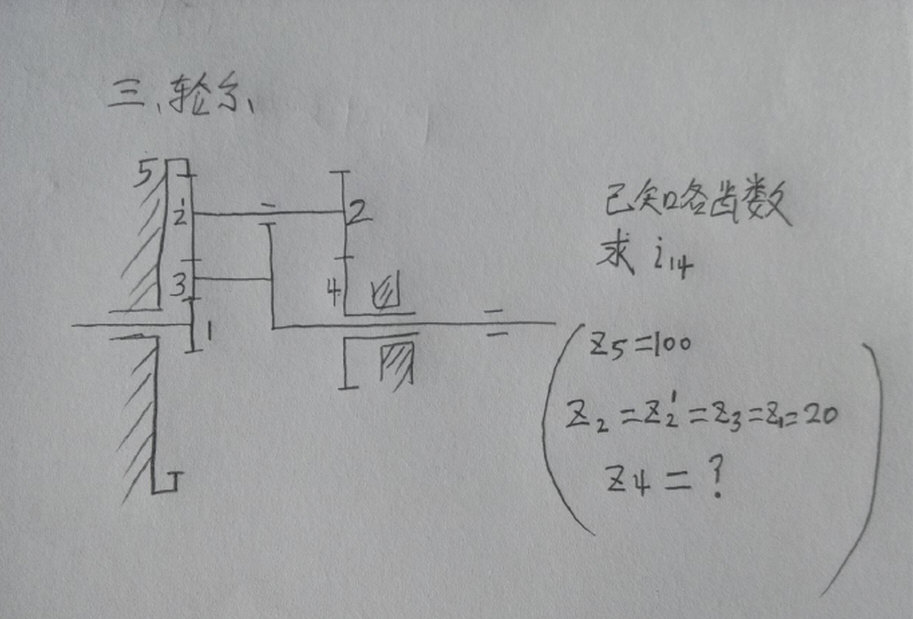 三、轮系
5
2'
2
3
4
1
已知各齿数
求 i14
Z5=100
Z2=Z2'=Z3=Z1=20
Z4=?